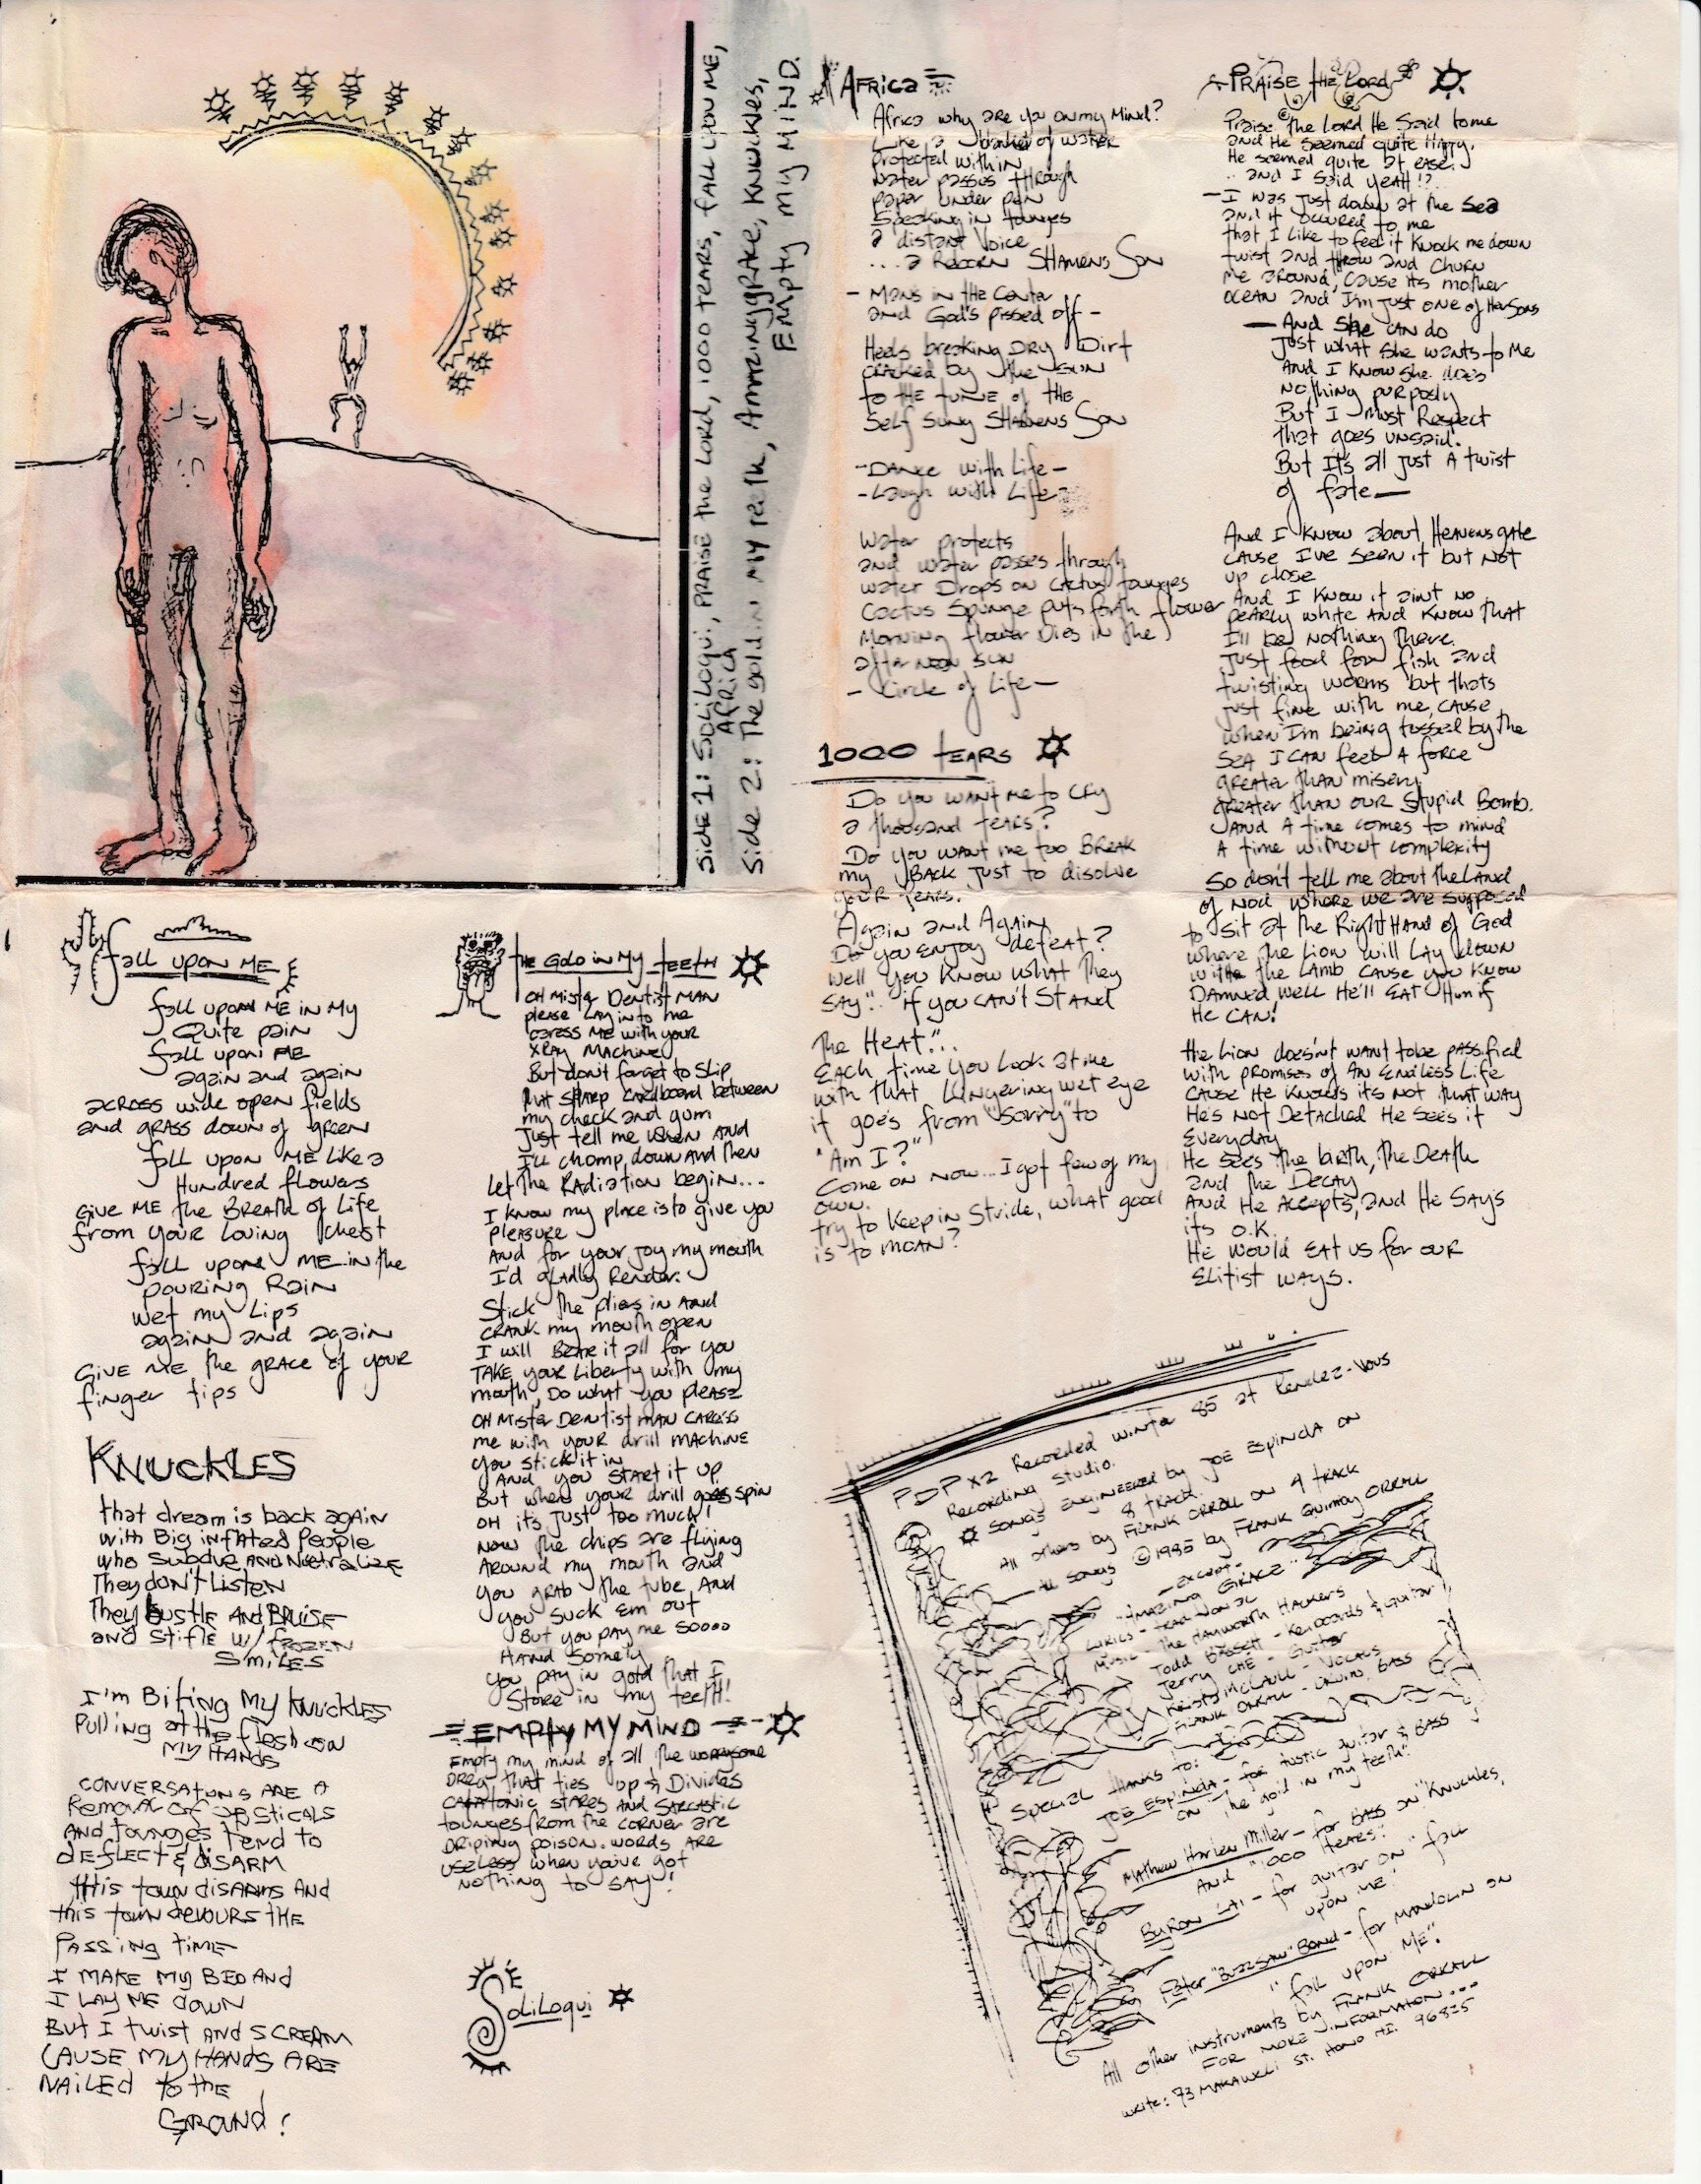 Side 1: Soliloqui, Praise the Lord, 1000 tears, fall upon me,
Africa
Side 2: The gold in my teeth, Amazing grace, Knuckles,
Empty my MIND.
Fall upon ME
fall upon ME in My
Quite pain
fall upon ME
again and again
across wide open fields
and grass down of green
fall upon ME like a
Hundred flowers
Give ME the Breath of Life
from your loving chest
fall upon ME in the
pouring Rain
wet my Lips
again and again
Give ME the grace of your
finger tips
KNUCKLES
that dream is back again
with Big inflated People
who subdue AND Neutralize
They don't Listen
They bustle AND Bruise
and stifle w/ frozen
SMILES
I'm Biting My Knuckles
Pulling at the flesh on
MY HANDS
CONVERSATONS ARE A
Remour of
AND tounges tend to
deflect & disARM
this town disarms AND
this town devours the
Passing time
I MAKE MY BED AND
I LAY ME down
But I twist AND SCREAM
CAUSE MY HANDS ARE
NAILED to the
GROUND!
the Gold in My teeth
OH Mister Dentist MAN
please lay into me
caress ME with your
XRAY MACHINE
But don't forget to slip
that SHARP cardboard between
my check and gum
Just tell me when AND
I'll chomp down And then
Let the Radiation begin...
I know my place is to give you
pleasure
And for your joy my mouth
I'd gladly Render.
Stick the plies in AND
CRANK my mouth open
I will Bare it all for you
TAKE your Liberty with my
mouth, Do what you please
OH Mister Dentist man caress
me with your drill machine
you stick it in
AND you START it up
But when your drill goes spin
OH it's just too much!
Now the chips are flying
Around my mouth and
you grab the tube AND
you suck Em out
But you pay me soooo
HAND somely
You pay in gold that I
Store in my teeth!
EMPTY MY MIND
Empty my mind of all the worrysome
Dreg that ties up & Divides
catatonic stares AND Sarcastic
tounges from the corner are
driping poison. words are
useless when you've got
nothing to say!
Soliloqui
Africa
Africa why are you on my Mind?
Like a blanket of water
protected within
water passes through
paper under pen
Speaking in tounges
a distant Voice
...a Reborn Shamens Son
- Mans in the Center
and God's pissed off -
Heels breaking DRY Dirt
cracked by the sun
to the tune of the
Self Sung Shamens Son
- Dance with Life -
- Laugh with Life -
Water protects
and water passes through
water Drops on cactus tounges
Cactus Spunge puts forth flower
Morning flower Dies in the
after noon sun
- Circle of Life -
1000 tears
Do you want me to cry
a thousand tears?
Do you want me too BREAK
my BACK just to disolve
your fears.
Again and Again
Do you enjoy defeat?
Well you know what they
say".. if you can't Stand
The Heat"..
Each time you Look at me
with that Lingering wet eye
it goes from "Sorry" to
"Am I?"
Come on now... I got few of my
own.
try to keep in Stride, what good
is to MOAN?
Praise the Lord
Praise the Lord He Said to me
and He seemed quite Happy.
He seemed quite at ease.
.. and I said yeah!?
- I was just down at the Sea
and it occured to me
that I like to feel it knock me down
twist and throw and churn
me around, cause its mother
ocean and I'm just one of Her Sons
- And She can do
Just what she wants to Me
And I know she does
nothing purposly
But I must Respect
that goes unsaid.
But It's all just A twist
of fate -
And I know about Heavens gate
cause I've seen it but not
up close
And I know it aint no
pearly white And know that
I'll be nothing there.
Just food for fish and
twisting worms but thats
just fine with me, cause
when I'm being tossed by the
sea I can feel A force
greater than misery
greater than our Stupid Bomb.
And A time comes to mind
A time without complexity
So don't tell me about the Land
of Nod where we are supposed
to sit at the Right Hand of God
where the Lion will Lay down
with the Lamb cause you know
Damned well He'll EAT Him if
He CAN!
the Lion doesn't want to be passified
with promises of An Endless Life
cause He knows its not that way
He's not Detached He sees it
everyday
He sees the birth, the Death
and the Decay
And He Accepts, and He Says
its O.K.
He would EAT us for our
Elitist ways.
PDP X2 Recorded Winter 85 at Rendez-Vous
Recording Studio.
Songs engineered by Joe Espinda on
8 track.
All others by Frank Orrall on 4 track
All songs ©1985 by Frank Quimby Orrall
- except -
"Amazing Grace"
Lyrics - traditional
Music - The Hayworth Hackers
Todd Bassett - Keyboards & guitar
Jerry - Guitar
Kristy McCaull - Vocals
Frank Orrall - Drums, Bass
Special thanks to:
Joe Espinda - for acoustic guitar & Bass
on "The gold in my teeth"
Mathew Harlen Miller - for Bass on "Knuckles,
And "1000 tears".
Byron Lai - for guitar on "fall
upon me"
Peter "Buzzsaw" Bond - for Mandolin on
"fall upon ME".
All other instruments by Frank Orrall
FOR MORE INFORMATION...
write: 73 Makaweli St. Hono HI. 96825